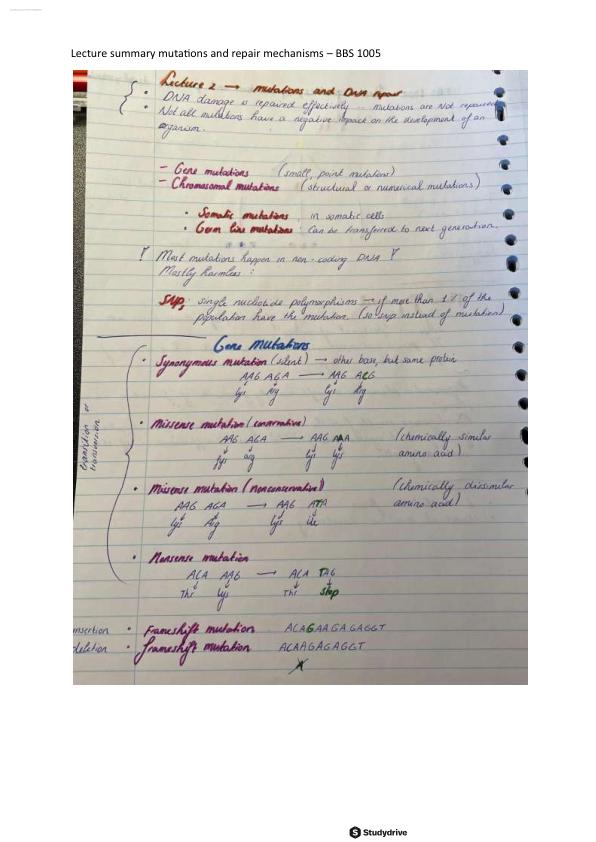 Lecture summary mutations and repair mechanisms – BBS 1005
Lecture 2 → mutations and DNA repair
• DNA damage is repaired effectively ... mutations are Not repaired
• Not all mutations have a negative impact on the development of an
organism.
– Gene mutations (small, point mutations)
– Chromosomal mutations (structural or numerical mutations)
• Somatic mutations : in somatic cells
• Germ line mutations : Can be transferred to next generation.
! Most mutations happen in non-coding DNA !
Mostly harmless :
SNP, single nucleotide polymorphisms → if more than 1% of the
population have the mutation. (so snp instead of mutation)
Gene Mutations
transition or
transversion
• Synonymous mutation (silent) → other base, but same protein
AAG AGA → AAG ACG
Lys Arg Lys Arg
• Missense mutation (conservative)
AAG AGA → AAG AAA (chemically similar
Lys Arg Lys Lys amino acid)
• Missense mutation (nonconservative) (chemically dissimilar
AAG AGA → AAG ATA amino acid)
Lys Arg Lys Ile
• Nonsense mutation
ACA AAG → ACA TAG
Thr Lys Thr Stop
nsertion • Frameshift mutation ACAGAAGAGAGGT
deletion • frameshift mutation ACAAGAGAGGT
Studydrive